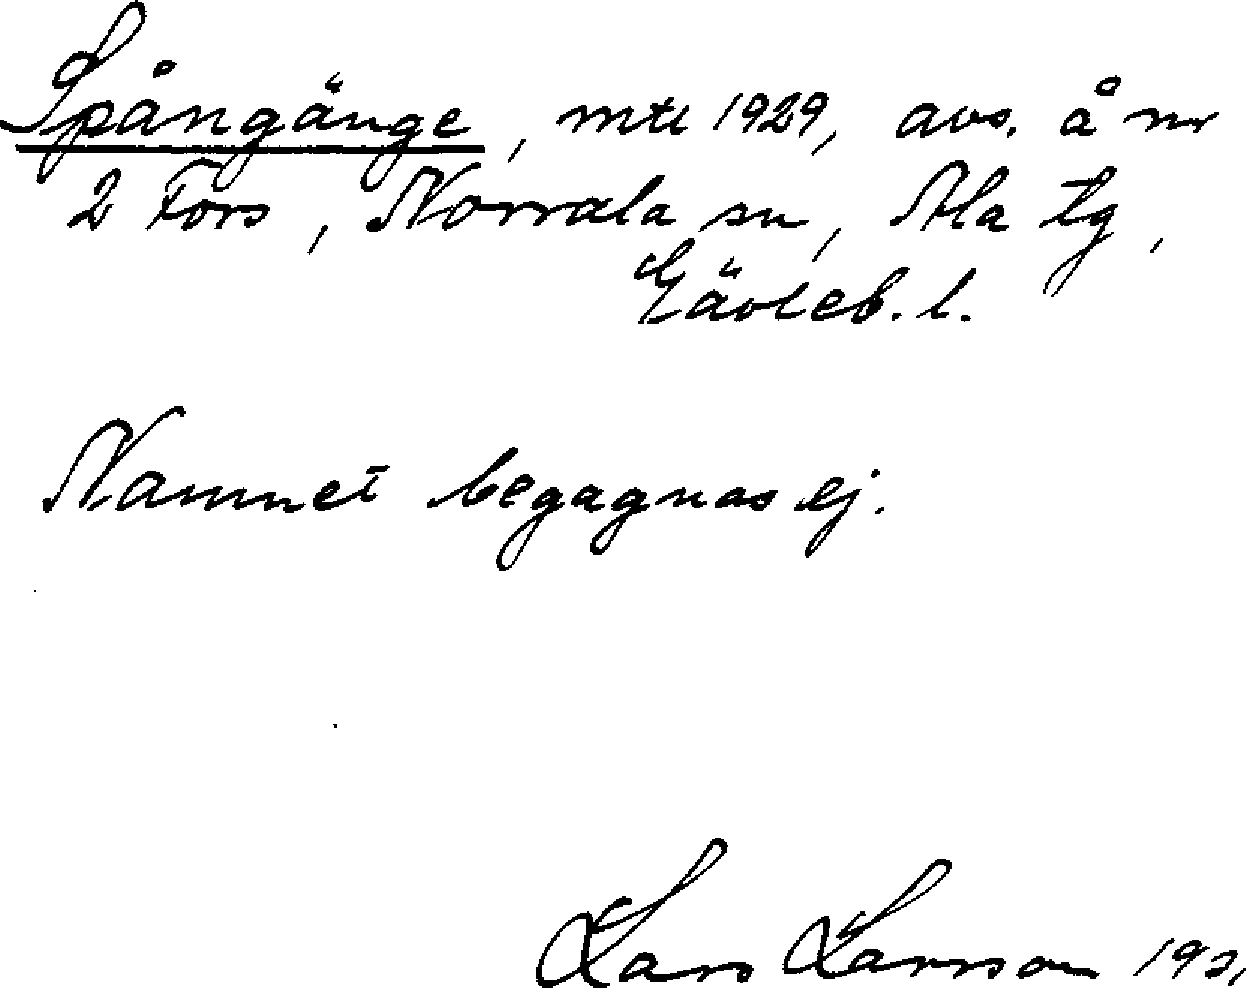 Spångänge, mtl 1929, avs. å nr
2 Fors, Norrala sn, Ala tg,
Gävleb. l.
Namnet begagnas ej.
Lars Larsson